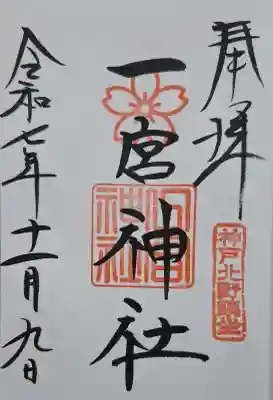 奉拝
神戸北野鎮坐
一宮神社
一宮神社
令和七年十一月九日